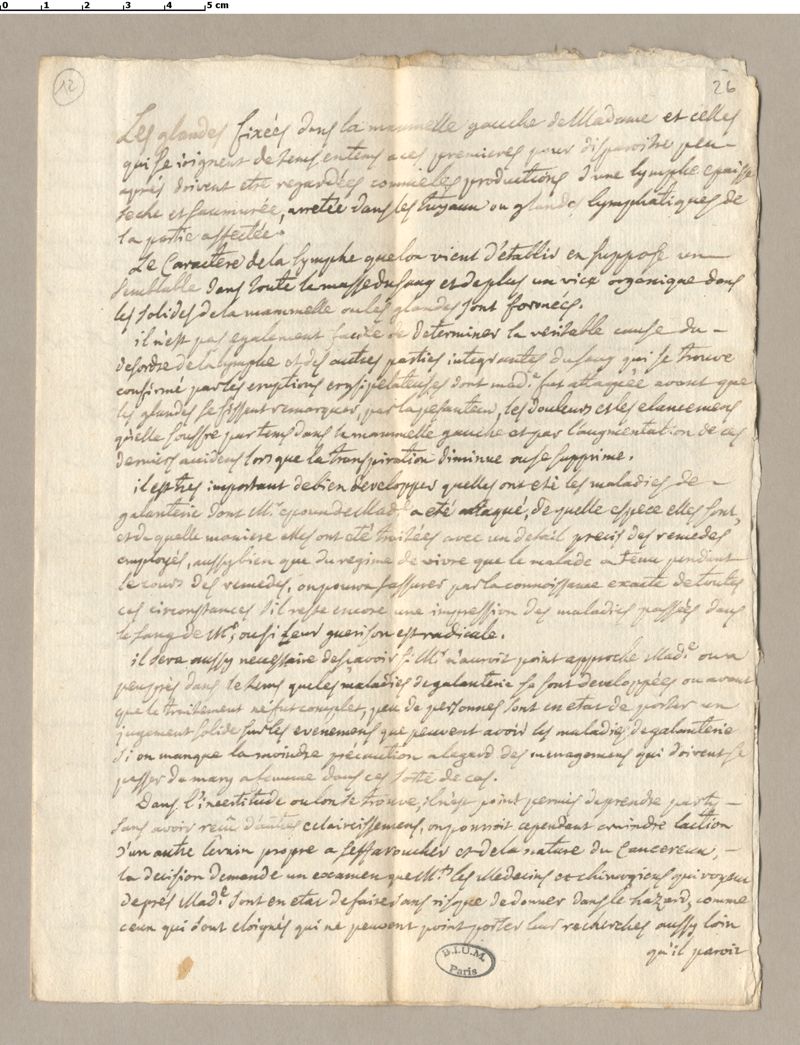 0 1 2 3 4 5 cm
12
26
Les glandes fixées dans la mammelle gauche de Madame et celles
qui se joignent de tems entems aces premieres pour disparoitre peu
aprés doivent etre regardées comme les productions d'une lymphe epaisse
seche et saumurée, arretée dans les tuyaux ou glandes lymphatiques de
la partie affectée.
Le Caractere de la lymphe que lon vient d'établir en suppose un
semblable dans toute la masse du sang et de plus un vice organique dans
les solides de la mammelle ou les glandes sont formées.
il n'est pas egalement facile de determiner la veritable cause du
desordre de la lymphe et des autres parties integrantes du sang qui se trouve
confirmé par les eruptions erysipelateuses dont mad.e fut attaquée avant que
les glandes se fissent remarquer, par la pesanteur, les douleurs et les elancemens
qu'elle souffre par tems dans la mammelle gauche et par l'augmentation de ces
derniers accidens lorsque la transpiration diminue ou se supprime.
il est tres important de bien developper quelles ont eté les maladies de
galanterie dont Mr. epoux de Mad.e a eté attaqué, de quelle espece elles sont,
et de quelle maniere elles ont eté traitées avec un detail precis des remedes
employés, aussy bien que du regime de vivre que le malade a tenu pendant
le cours des remedes, on pourra s'assurer par la connoissance exacte de toutes
ces circonstances s'il reste encore une impression des maladies passées dans
le sang de Mr., ou si leur guerison est radicale.
il sera aussy necessaire de scavoir si Mr. n'auroit point approché Mad.e ou a
peu prés dans le tems que les maladies de galanterie se sont developpées ou avant
que le traitement ne fut complet, peu de personnes sont en etat de porter un
jugement solide sur les evenemens que peuvent avoir les maladies de galanterie
si on manque la moindre précaution a legard des menagemens qui doivent se
passer du mary a femme dans ces sorte de cas.
Dans l'incertitude ou lon se trouve, il n'est point permis de prendre party
sans avoir reçu d'autres eclaircissemens, on pourroit cependant craindre laction
d'un autre levain propre a s'effaroucher et de la nature du Cancereux,
la decision demande un examen que Mrs. les Medecins et chirurgiens qui voyent
de prés Mad.e sont en etat de faire sans risque de donner dans le hazard, comme
ceux qui sont eloignés qui ne peuvent point porter leur recherches aussy loin
qu'il paroit
B.I.U.M.
Paris